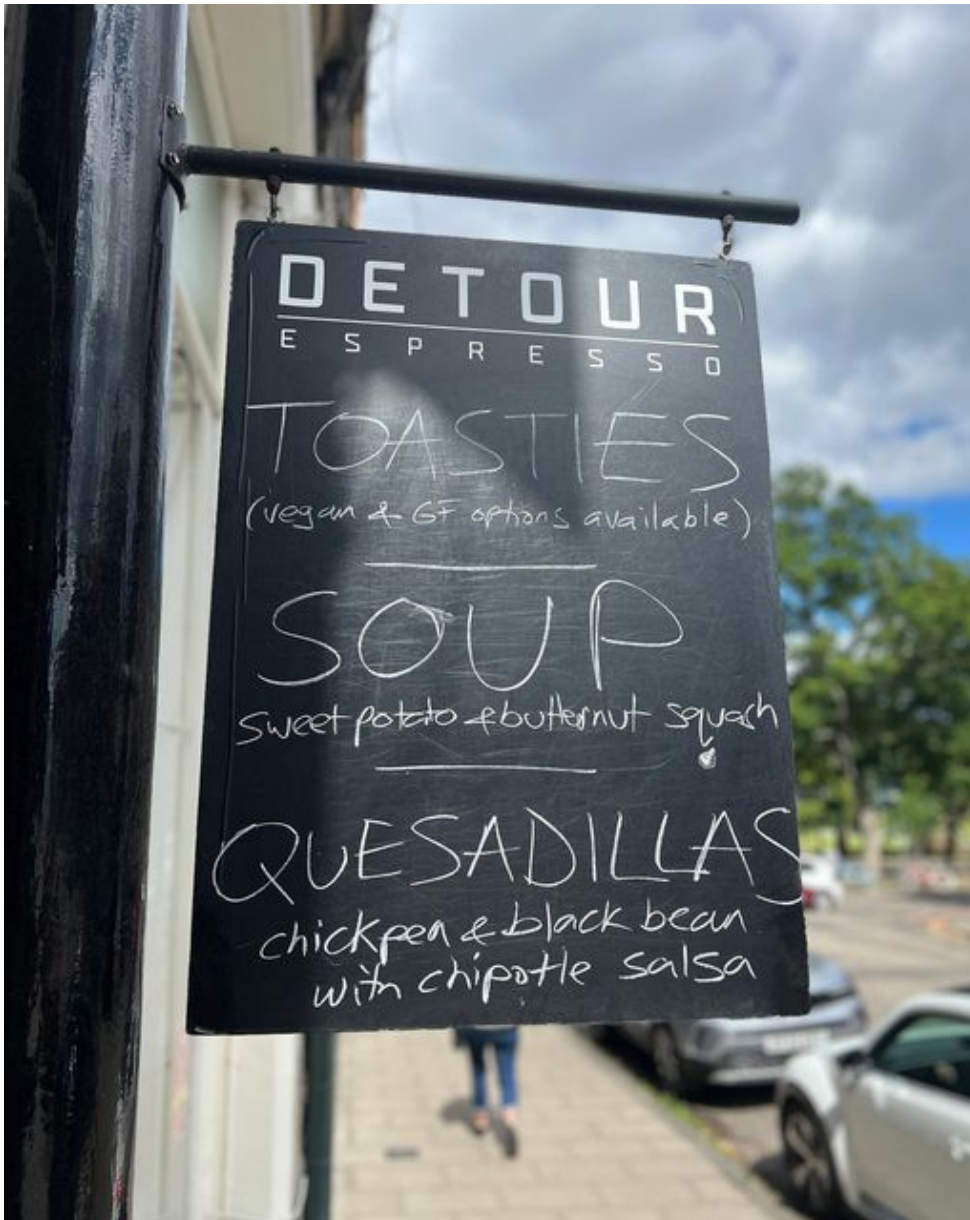 DETOUR
ESPRESSO
TOASTIES
(vegan & GF options available)
SOUP
sweet potato & butternut squash
QUESADILLAS
chickpea & black bean
with chipotle salsa